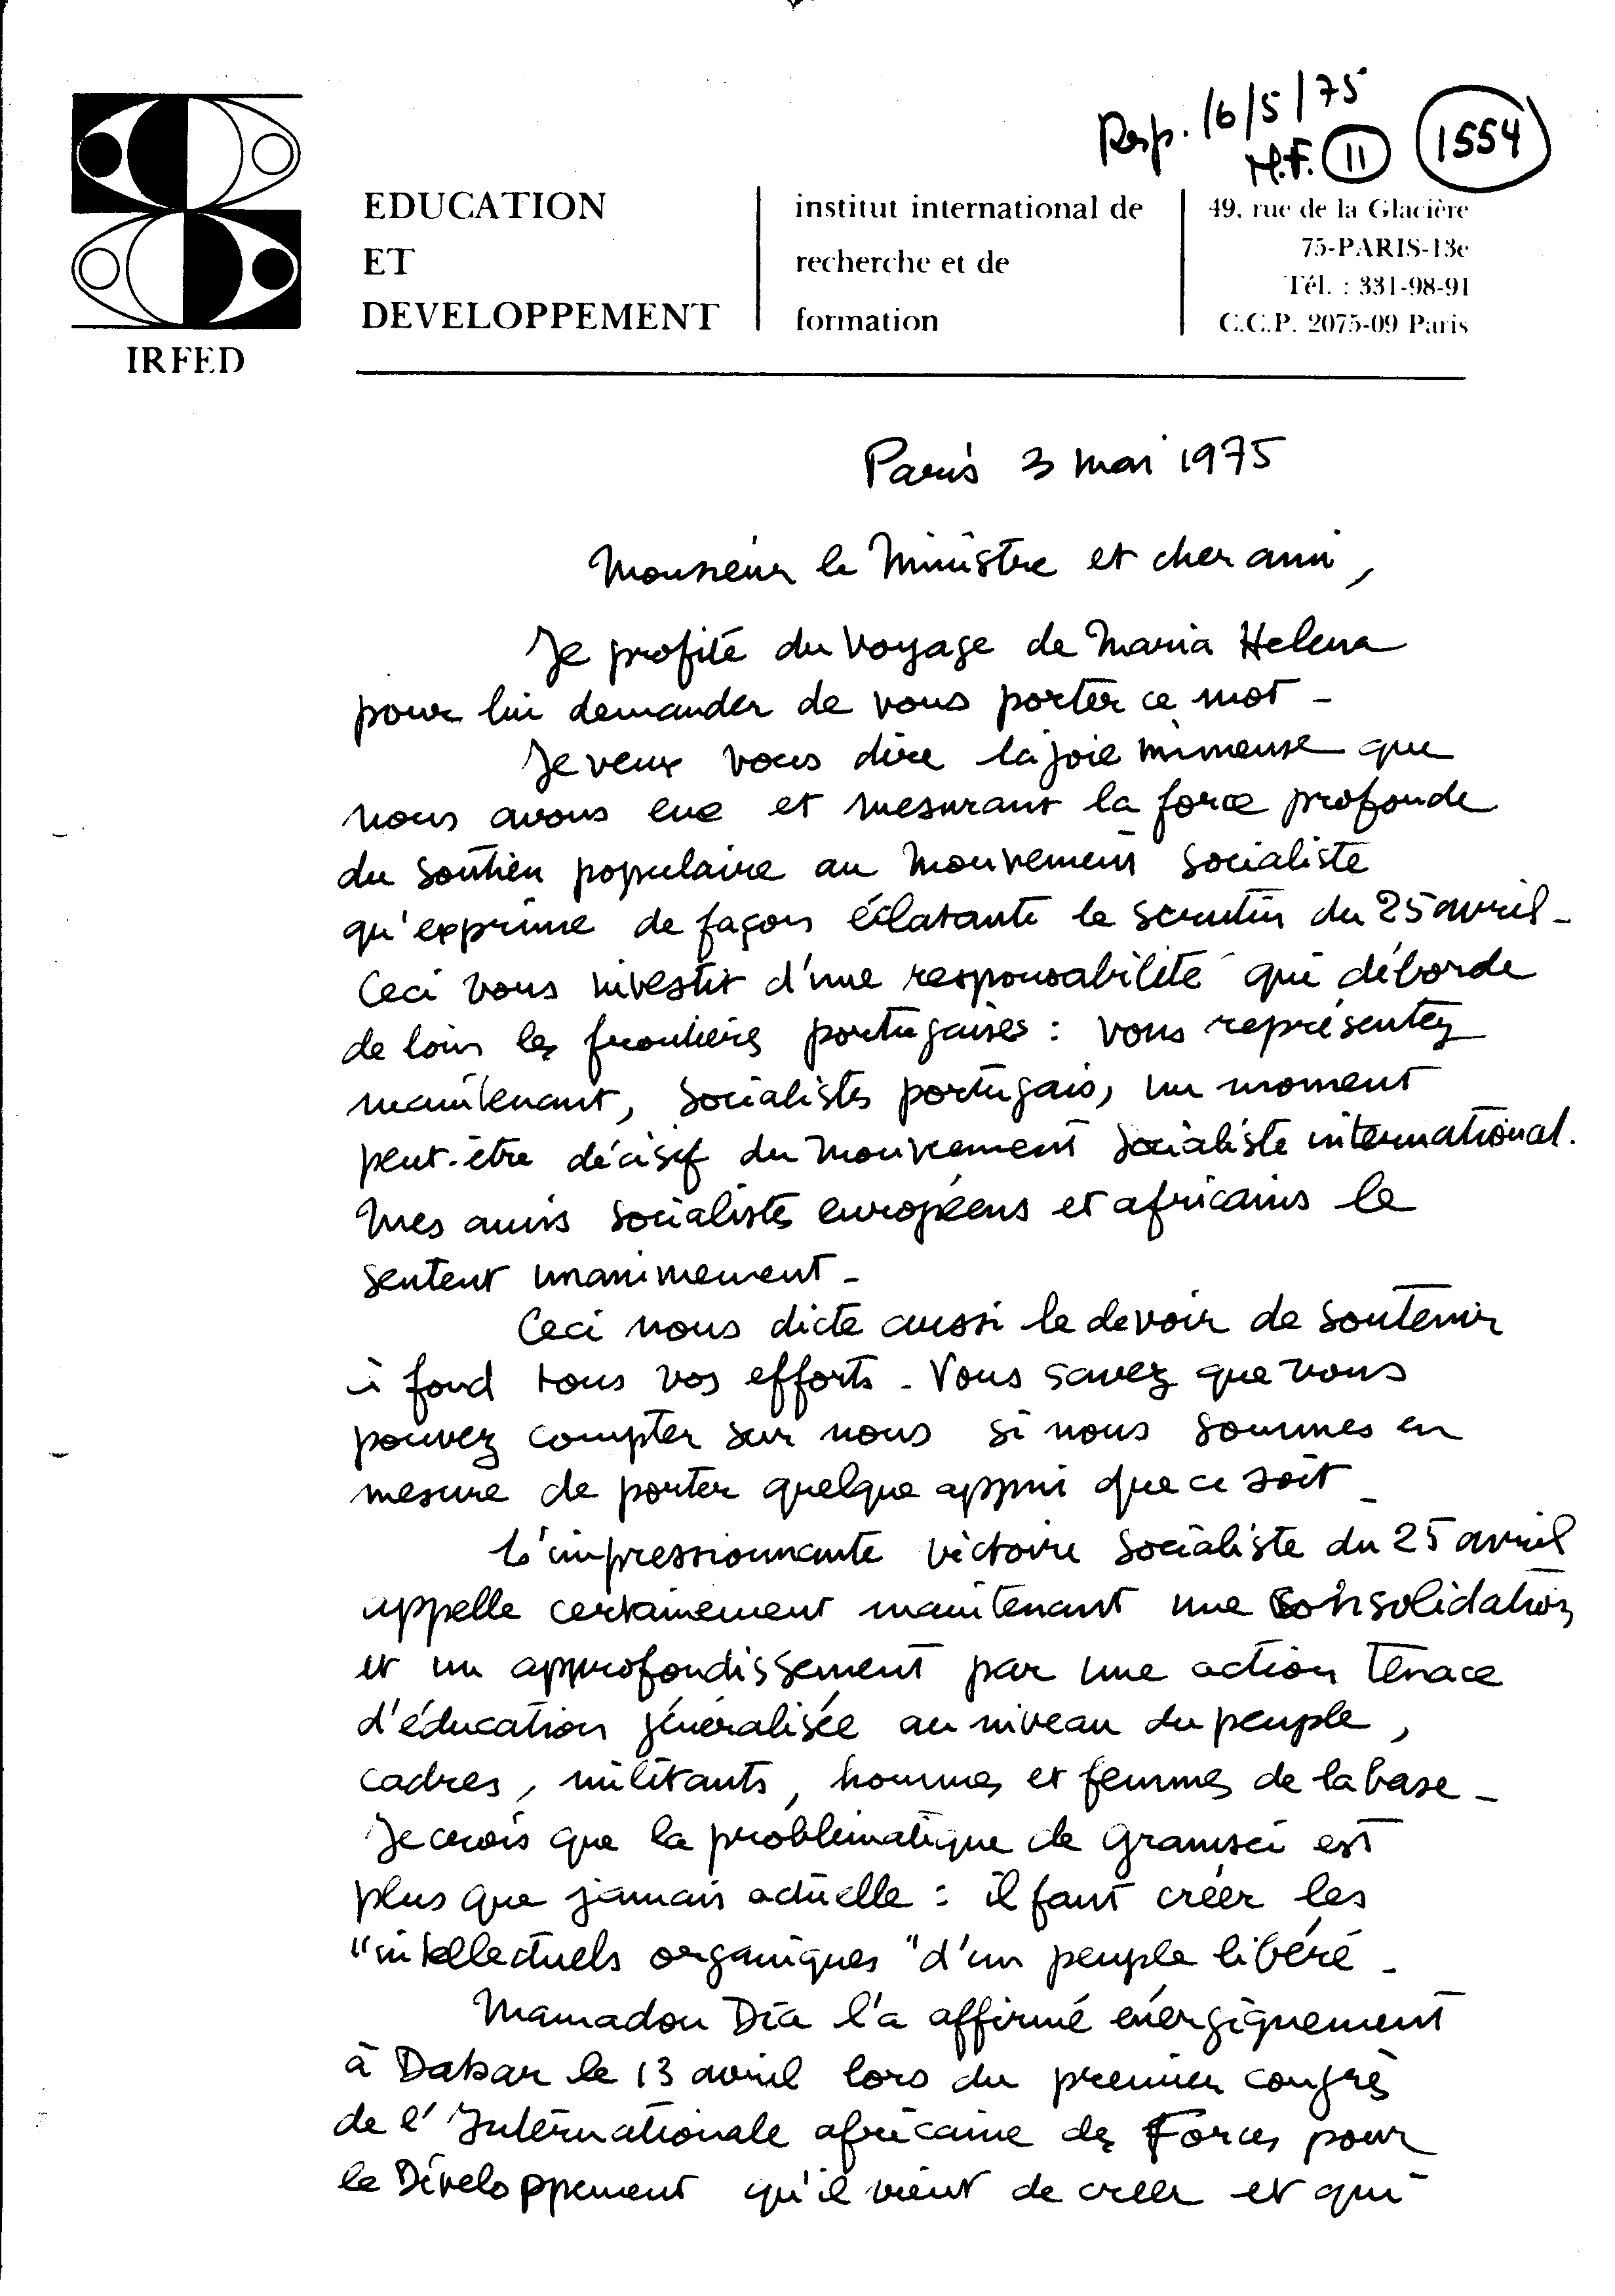 Resp. 16/5/75
M.F. 11
1554
IRFED
EDUCATION
ET
DEVELOPPEMENT
institut international de
recherche et de
formation
49, rue de la Glacière
75-PARIS-13e
Tél. : 331-98-91
C.C.P. 2075-09 Paris
Paris 3 mai 1975
Monsieur le Ministre et cher ami,
Je profite du voyage de Maria Helena
pour lui demander de vous porter ce mot -
Je veux vous dire la joie immense que
nous avons eue et mesurant la force profonde
du soutien populaire au Mouvement socialiste
qu'exprime de façon éclatante le scrutin du 25 avril -
Ceci vous investit d'une responsabilité qui déborde
de loin les frontières portugaises : vous représentez
maintenant, socialistes portugais, un moment
peut-être décisif du Mouvement socialiste international.
Mes amis socialistes européens et africains le
sentent unanimement -
Ceci nous dicte aussi le devoir de soutenir
à fond tous vos efforts - Vous savez que vous
pouvez compter sur nous si nous sommes en
mesure de porter quelque appui que ce soit -
L'impressionnante victoire socialiste du 25 avril
appelle certainement maintenant une consolidation
et un approfondissement par une action tenace
d'éducation généralisée au niveau du peuple,
cadres, militants, hommes et femmes de la base -
Je crois que la problématique de Gramsci est
plus que jamais actuelle : il faut créer les
"intellectuels organiques" d'un peuple libéré -
Mamadou Dia l'a affirmé énergiquement
à Dakar le 13 avril lors du premier congrès
de l'Internationale africaine des Forces pour
le Développement qu'il vient de créer et qui